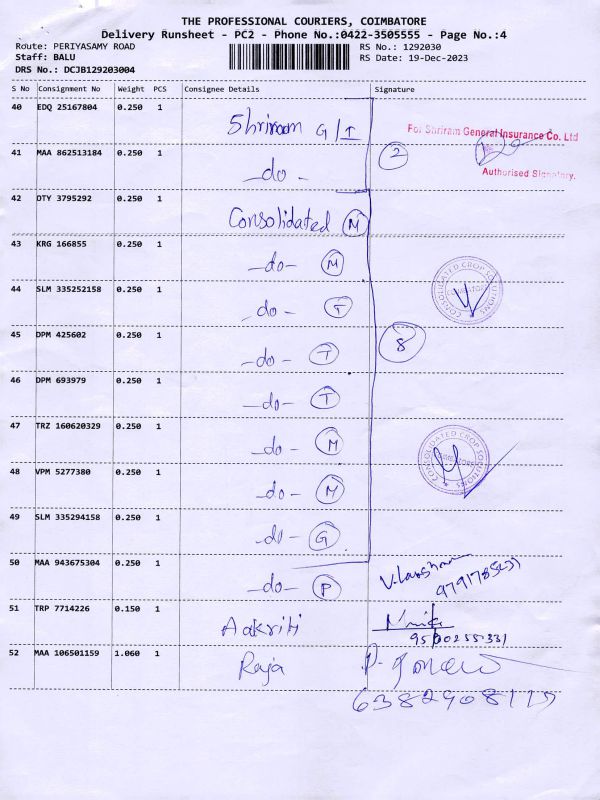 THE PROFESSIONAL COURIERS, COIMBATORE
Delivery Runsheet - PC2 - Phone No.:0422-3505555 - Page No.:4
Route: PERIYASAMY ROAD RS No.: 1292030
Staff: BALU RS Date: 19-Dec-2023
DRS No.: DCJB129203004
S No Consignment No Weight PCS Consignee Details Signature
40 EDQ 25167804 0.250 1 Shriram G/I
For Shriram General Insurance Co. Ltd
41 MAA 862513184 0.250 1 -do- 2
Authorised Signatory.
42 DTY 3795292 0.250 1 Consolidated M
43 KRG 166855 0.250 1 -do- M
CONSOLIDATED CROP SOLUTIONS
44 SLM 335252158 0.250 1 -do- T
45 DPM 425602 0.250 1 -do- T 8
46 DPM 693979 0.250 1 -do- T
47 TRZ 160620329 0.250 1 -do- M
CONSOLIDATED CROP SOLUTIONS
48 VPM 5277380 0.250 1 -do- M
49 SLM 335294158 0.250 1 -do- G
50 MAA 943675304 0.250 1 -do- P
51 TRP 7714226 0.150 1 Aakriti
9500255331
52 MAA 106501159 1.060 1 Raja